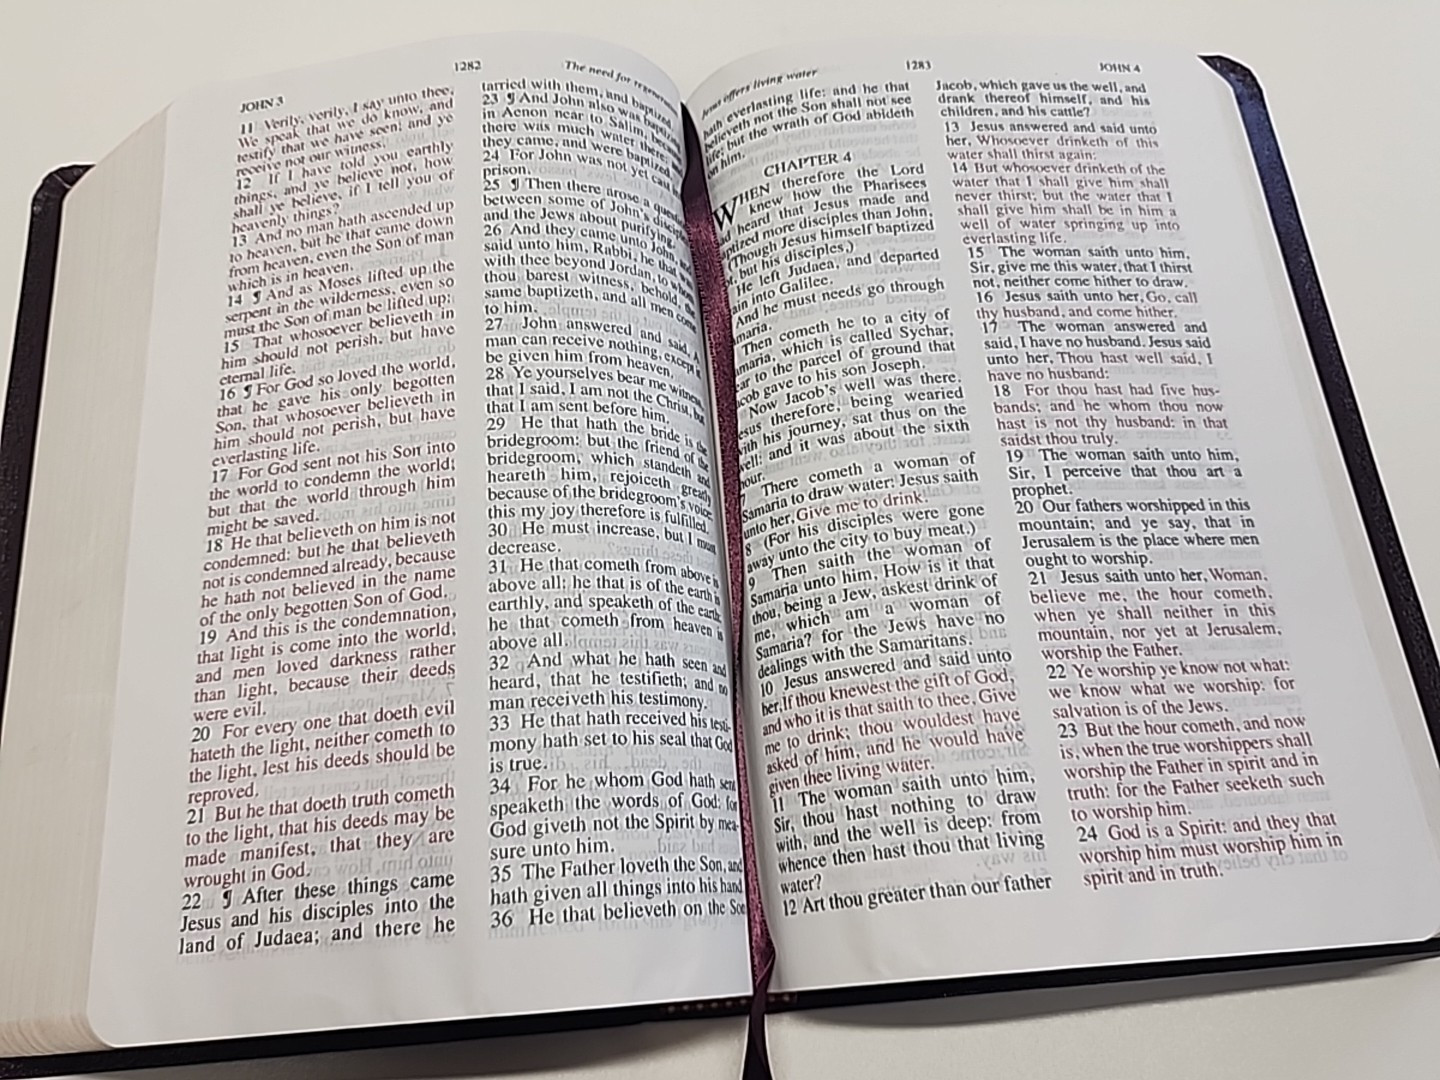 1282
The need for
JOHN 3
11 Verily, verily, I say unto thee,
We speak that we do know, and
testify that we have seen; and ye
receive not our witness.
12 If I have told you earthly
things, and ye believe not, how
shall ye believe, if I tell you of
heavenly things?
13 And no man hath ascended up
to heaven, but he that came down
from heaven, even the Son of man
which is in heaven.
14 ¶ And as Moses lifted up the
serpent in the wilderness, even so
must the Son of man be lifted up:
15 That whosoever believeth in
him should not perish, but have
eternal life.
16 ¶ For God so loved the world,
that he gave his only begotten
Son, that whosoever believeth in
him should not perish, but have
everlasting life.
17 For God sent not his Son into
the world to condemn the world;
but that the world through him
might be saved.
18 He that believeth on him is not
condemned: but he that believeth
not is condemned already, because
he hath not believed in the name
of the only begotten Son of God.
19 And this is the condemnation,
that light is come into the world,
and men loved darkness rather
than light, because their deeds
were evil.
20 For every one that doeth evil
hateth the light, neither cometh to
the light, lest his deeds should be
reproved.
21 But he that doeth truth cometh
to the light, that his deeds may be
made manifest, that they are
wrought in God.
22 ¶ After these things came
Jesus and his disciples into the
land of Judaea; and there he
tarried with them, and baptized.
23 ¶ And John also was
in Aenon near to Salim,
there was much water there:
they came, and were baptized.
24 For John was not yet cast
prison.
25 ¶ Then there arose a
between some of John's
and the Jews about purifying.
26 And they came unto John, and
said unto him, Rabbi, he that
with thee beyond Jordan, to whom
thou barest witness, behold, the
same baptizeth, and all men come
to him.
27 John answered and said, A
man can receive nothing, except it
be given him from heaven.
28 Ye yourselves bear me witness,
that I said, I am not the Christ, but
that I am sent before him.
29 He that hath the bride is the
bridegroom: but the friend of the
bridegroom, which standeth and
heareth him, rejoiceth greatly
because of the bridegroom's voice:
this my joy therefore is fulfilled.
30 He must increase, but I must
decrease.
31 He that cometh from above is
above all: he that is of the earth is
earthly, and speaketh of the earth:
he that cometh from heaven is
above all.
32 And what he hath seen and
heard, that he testifieth; and no
man receiveth his testimony.
33 He that hath received his testi-
mony hath set to his seal that God
is true.
34 For he whom God hath sent
speaketh the words of God: for
God giveth not the Spirit by mea-
sure unto him.
35 The Father loveth the Son, and
hath given all things into his hand.
36 He that believeth on the Son
Jesus offers living water
1283
JOHN 4
hath everlasting life: and he that
believeth not the Son shall not see
life; but the wrath of God abideth
on him.
CHAPTER 4
WHEN therefore the Lord
knew how the Pharisees
heard that Jesus made and
more disciples than John,
(Though Jesus himself baptized
but his disciples,)
He left Judaea, and departed
into Galilee.
And he must needs go through
Then cometh he to a city of
which is called Sychar,
to the parcel of ground that
gave to his son Joseph.
Now Jacob's well was there.
therefore, being wearied
with his journey, sat thus on the
well: and it was about the sixth
hour.
7 There cometh a woman of
Samaria to draw water: Jesus saith
unto her, Give me to drink.
8 (For his disciples were gone
away unto the city to buy meat.)
9 Then saith the woman of
Samaria unto him, How is it that
thou, being a Jew, askest drink of
me, which am a woman of
Samaria? for the Jews have no
dealings with the Samaritans.
10 Jesus answered and said unto
her, If thou knewest the gift of God,
and who it is that saith to thee, Give
me to drink; thou wouldest have
asked of him, and he would have
given thee living water.
11 The woman saith unto him,
Sir, thou hast nothing to draw
with, and the well is deep: from
whence then hast thou that living
water?
12 Art thou greater than our father
Jacob, which gave us the well, and
drank thereof himself, and his
children, and his cattle?
13 Jesus answered and said unto
her, Whosoever drinketh of this
water shall thirst again:
14 But whosoever drinketh of the
water that I shall give him shall
never thirst; but the water that I
shall give him shall be in him a
well of water springing up into
everlasting life.
15 The woman saith unto him,
Sir, give me this water, that I thirst
not, neither come hither to draw.
16 Jesus saith unto her, Go, call
thy husband, and come hither.
17 The woman answered and
said, I have no husband. Jesus said
unto her, Thou hast well said, I
have no husband:
18 For thou hast had five hus-
bands; and he whom thou now
hast is not thy husband: in that
saidst thou truly.
19 The woman saith unto him,
Sir, I perceive that thou art a
prophet.
20 Our fathers worshipped in this
mountain; and ye say, that in
Jerusalem is the place where men
ought to worship.
21 Jesus saith unto her, Woman,
believe me, the hour cometh,
when ye shall neither in this
mountain, nor yet at Jerusalem,
worship the Father.
22 Ye worship ye know not what:
we know what we worship: for
salvation is of the Jews.
23 But the hour cometh, and now
is, when the true worshippers shall
worship the Father in spirit and in
truth: for the Father seeketh such
to worship him.
24 God is a Spirit: and they that
worship him must worship him in
spirit and in truth.